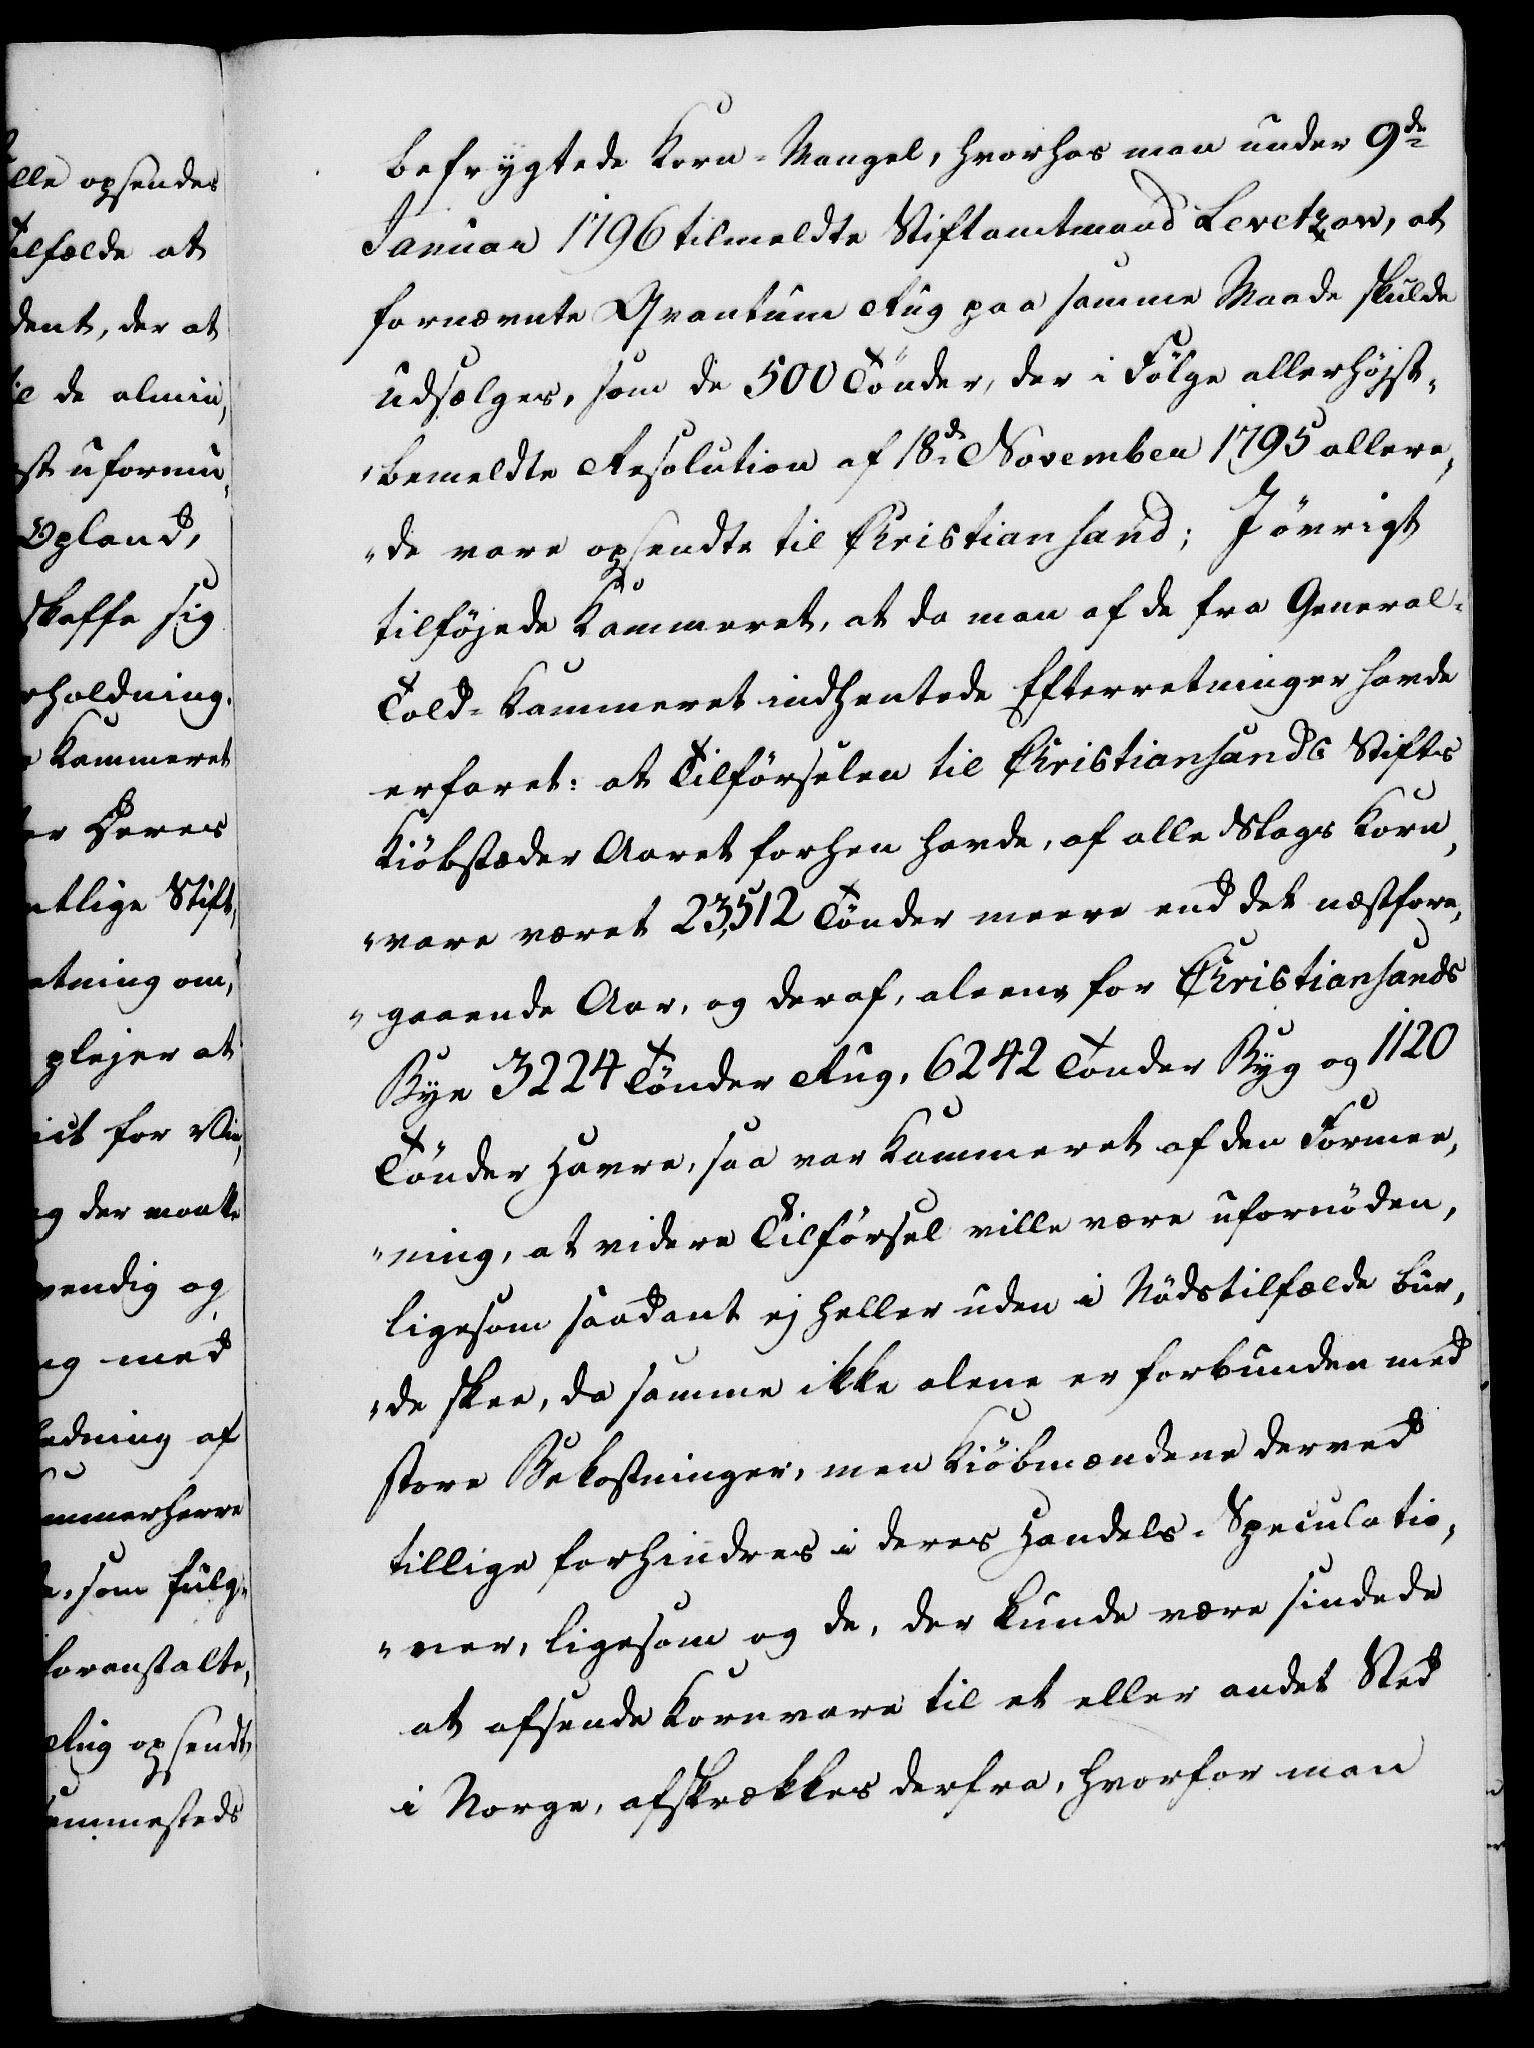 lle opsendes
ilfælde at
dent, der at
de almin„
st uformu„
Opland,
skaffe sig
rholdning.
Kammeret
er Deres
tlige Stift„
tning om,
plejer at
ict for Vin„
g der maatte
vendig og
ng med
ledning af
mmerherre
som fulg„
foranstalte„
Rug opsendt
emmesteds
befrygtede Korn-Mangel, hvorhos man under 9de
Januar 1796 tilmeldte Stiftamtmand Levetzow, at
fornævnte Qvantum Rug paa samme Maade skulde
udsælges, som de 500 Tönder, der i Fölge allerhøjst„
„bemeldte Resolution af 18de November 1795 allere„
„de vare opsendte til Christiansand; Jövrigt
tilføjede Kammeret, at da man af de fra General-
Told-Kammeret indhentede Efterretninger havde
erfaret: at Tilførselen til Christiansands Stifts
Kiöbstæder Aaret forhen havde, af alle Slags Korn„
„vare været 23,512 Tönder meere end det næstfore„
„gaaende Aar, og deraf, aleene for Christiansands
Bye 3224 Tönder Rug, 6242 Tönder Byg og 1120
Tönder Havre, saa var Kammeret af den Formee„
„ning, at videre Tilførsel ville være ufornöden,
ligesom saadant ej heller uden i Nödstilfælde bur„
„de skee, da samme ikke alene er forbunden med
store Bekostninger, men Kiöbmændene derved
tillige forhindres i deres Handels-Speculatio„
„ner, ligesom og de, der kunde være sindede
at afsende Kornvare til et eller andet Sted
i Norge, afskrækkes derfra, hvorfor man